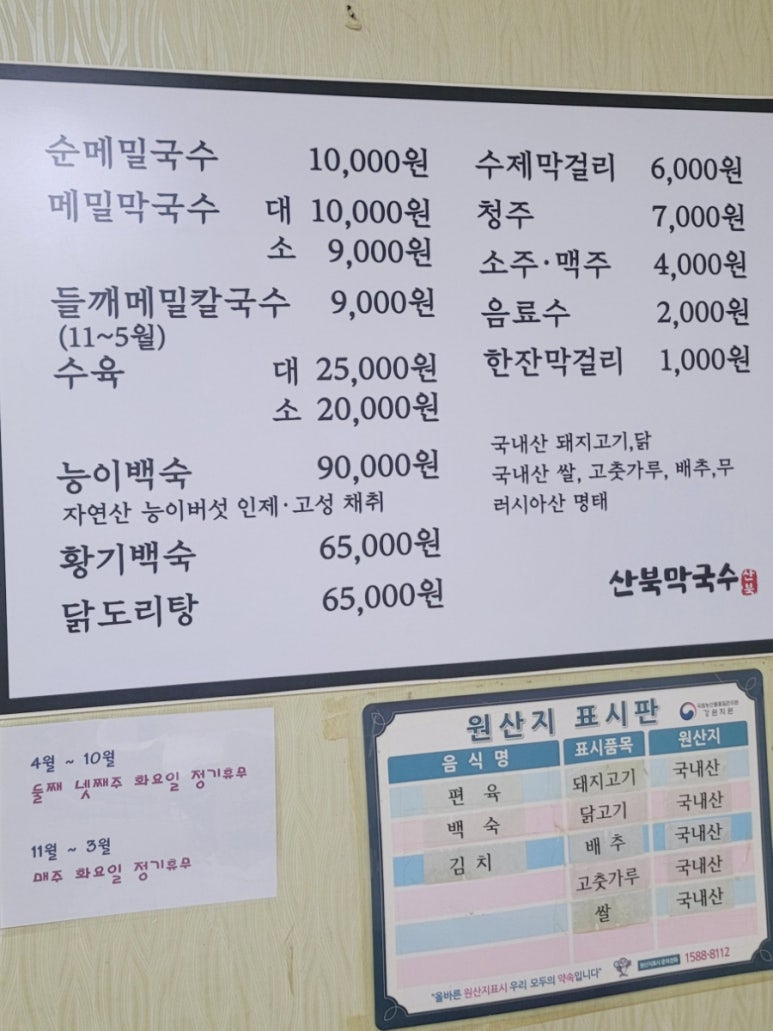 순메밀국수 10,000원
메밀막국수 대 10,000원
소 9,000원
들깨메밀칼국수 9,000원
(11~5월)
수육 대 25,000원
소 20,000원
능이백숙 90,000원
자연산 능이버섯 인제·고성 채취
황기백숙 65,000원
닭도리탕 65,000원
수제막걸리 6,000원
청주 7,000원
소주·맥주 4,000원
음료수 2,000원
한잔막걸리 1,000원
국내산 돼지고기,닭
국내산 쌀, 고춧가루, 배추,무
러시아산 명태
산북막국수 산북
4월 ~ 10월
둘째 넷째주 화요일 정기휴무
11월 ~ 3월
매주 화요일 정기휴무
원산지 표시판
국립농산물품질관리원
강원지원
음식명 표시품목 원산지
편육 돼지고기 국내산
백숙 닭고기 국내산
김치 배추 국내산
고춧가루 국내산
쌀 국내산
"올바른 원산지표시 우리 모두의 약속입니다"
원산지표시 문의전화 1588-8112